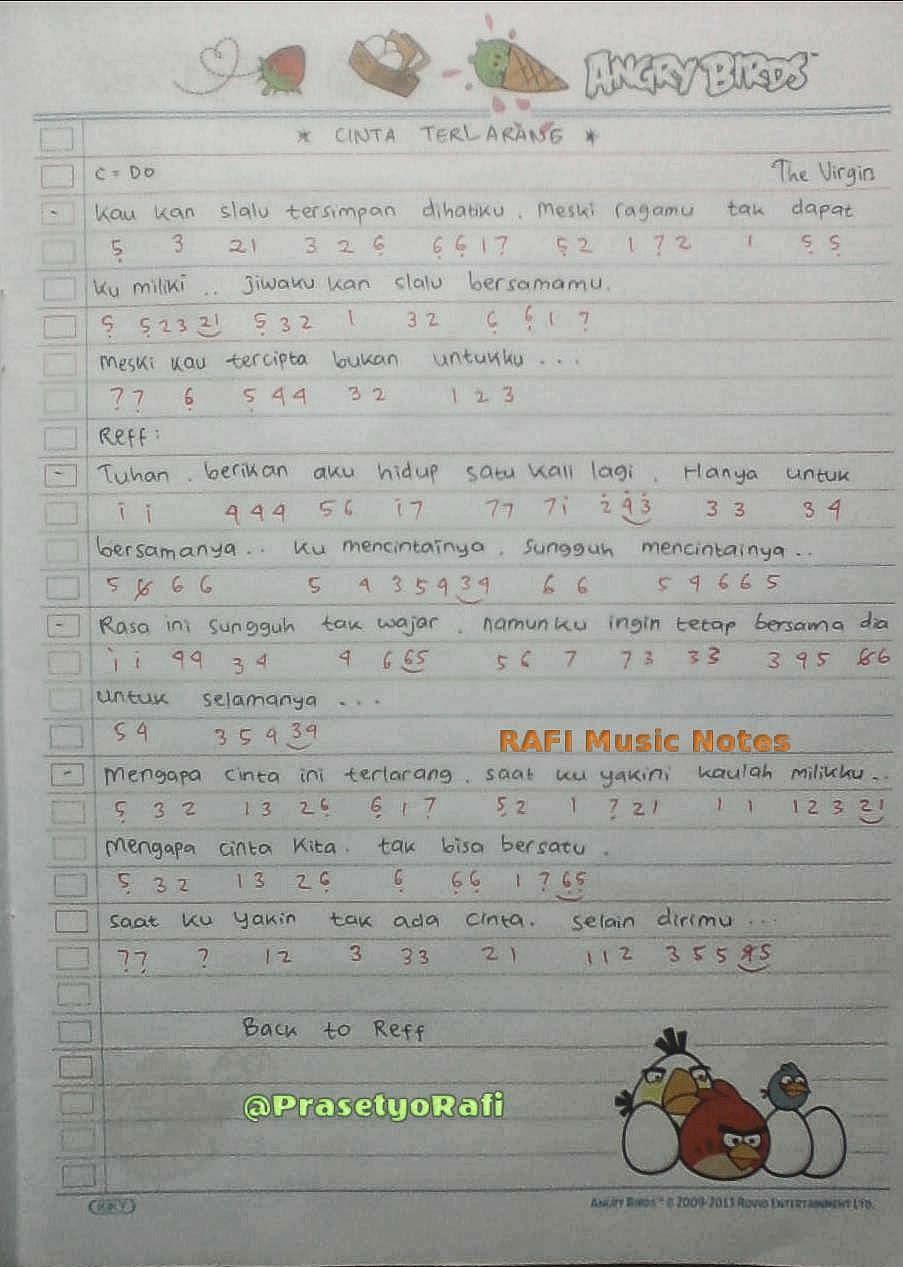 ANGRY BIRDS™
* CINTA TERLARANG *
C = DO The Virgin
Kau kan slalu tersimpan dihatiku. Meski ragamu tak dapat
5̣ 3 21 3 2 6̣ 6̣ 6̣ 1 7̣ 5̣ 2 1 7̣ 2 1 5̣ 5̣
ku miliki .. Jiwaku kan slalu bersamamu.
5̣ 5̣ 2 3 21 5̣ 3 2 1 3 2 6̣ 6̣ 1 7̣
Meski kau tercipta bukan untukku ...
7̣ 7̣ 6̣ 5̣ 4 4 3 2 1 2 3
Reff :
- Tuhan . berikan aku hidup satu kali lagi . Hanya untuk
i i 4 4 4 5 6 i 7 7 7 7 i 2̇ 4̇ 3̇ 3 3 3 4
bersamanya .. ku mencintainya . sungguh mencintainya ..
5 6 6 6 5 4 3 5 4 3 4 6 6 5 4 6 6 5
- Rasa ini sungguh tak wajar . namunku ingin tetap bersama dia
i i 4 4 3 4 4 6 6 5 5 6 7 7 3 3 3 3 4 5 6 6
untuk selamanya ...
5 4 3 5 4 3 4
RAFI Music Notes
- Mengapa cinta ini terlarang . saat ku yakini kaulah milikku ..
5̣ 3 2 1 3 2 6̣ 6̣ 1 7̣ 5̣ 2 1 7̣ 2 1 1 1 1 2 3 2 1
Mengapa cinta kita . tak bisa bersatu .
5̣ 3 2 1 3 2 6̣ 6̣ 6̣ 6̣ 1 7̣ 6̣ 5̣
saat ku yakin tak ada cinta. selain dirimu ...
7̣ 7̣ 7̣ 1 2 3 3 3 2 1 1 1 2 3 5 5 4 5
Back to Reff
@PrasetyoRafi
KKY
ANGRY BIRDS™ © 2009-2013 ROVIO ENTERTAINMENT LTD.